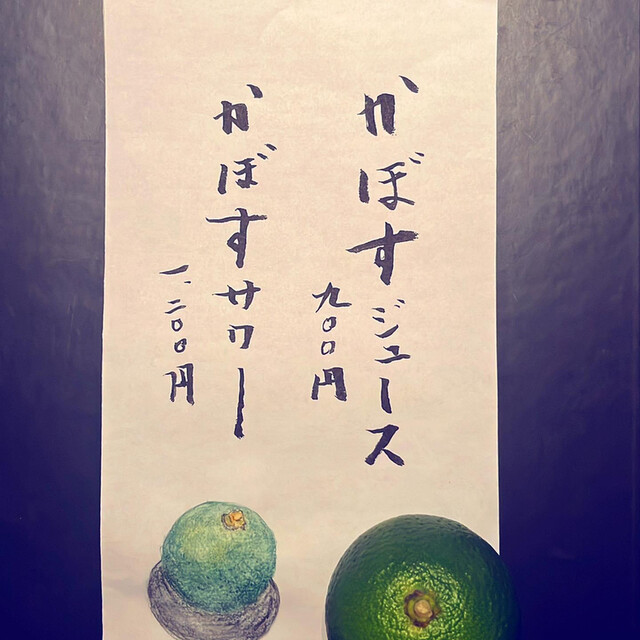 かぼすジュース
九〇〇円
かぼすサワー
一、二〇〇円